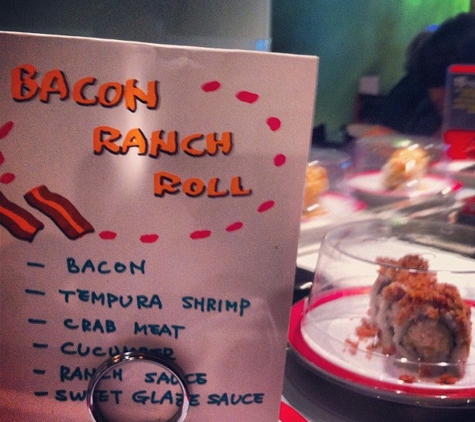 BACON
RANCH
ROLL
- BACON
- TEMPURA SHRIMP
- CRAB MEAT
- CUCUMBER
- RANCH SAUCE
- SWEET GLAZE SAUCE